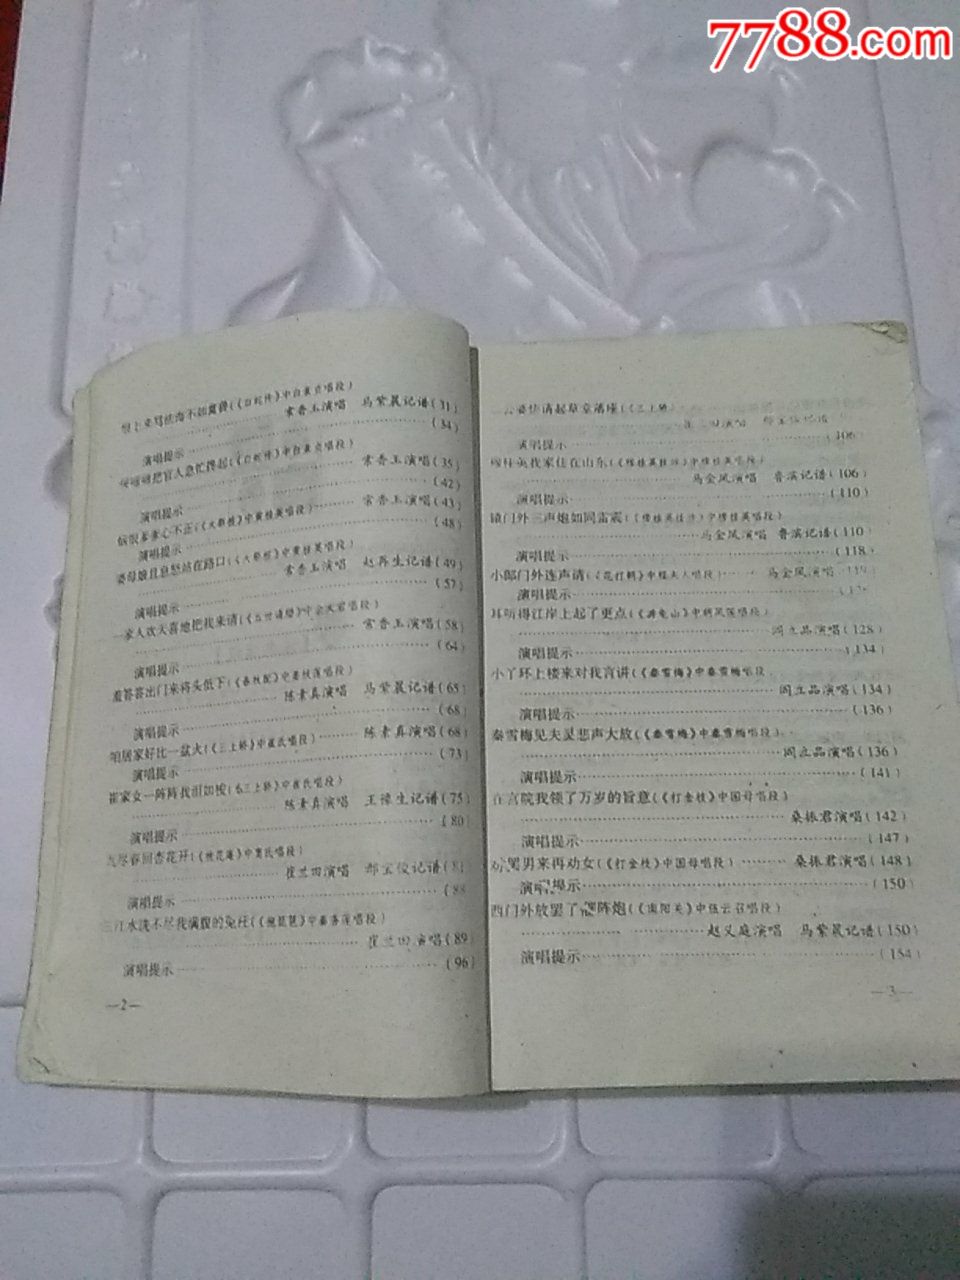 7788.com
恨上来骂法海不如禽兽(《白蛇传》中白素贞唱段)
常香玉演唱 马紫晨记谱(31)
演唱提示 (34)
把官人急忙搀起(《白蛇传》中白素贞唱段)
常香玉演唱(35)
演唱提示 (42)
心不正(《大祭桩》中黄桂英唱段)
常香玉演唱(43)
演唱提示 (48)
婆母娘且息怒站在路口(《大祭桩》中黄桂英唱段)
常香玉演唱 赵再生记谱(49)
演唱提示 (57)
一家人欢天喜地把我来请(《五世请缨》中佘太君唱段)
常香玉演唱(58)
演唱提示 (64)
羞答答出门来将头低下(《春秋配》中姜秋莲唱段)
陈素真演唱 马紫晨记谱(65)
演唱提示 (68)
咱居家好比一盆火(《三上轿》中崔氏唱段) 陈素真演唱(68)
演唱提示 (73)
崔家女一阵阵我泪如梭(《三上轿》中崔氏唱段)
陈素真演唱 王豫生记谱(75)
演唱提示 (80)
九尽春回杏花开(《桃花庵》中窦氏唱段)
崔兰田演唱 郜宝俊记谱(81
演唱提示 (88
三江水洗不尽我满腹的冤枉(《抱琵琶》中秦香莲唱段)
崔兰田演唱(89)
演唱提示 (96)
—2—
公婆快请起草堂落座(《三上轿》
崔兰田演唱 郜宝俊记谱
演唱提示 106
穆桂英我家住在山东(《穆桂英挂帅》中穆桂英唱段)
马金凤演唱 鲁滨记谱(106)
演唱提示 (110)
辕门外三声炮如同雷震(《穆桂英挂帅》中穆桂英唱段)
马金凤演唱 鲁滨记谱(110
演唱提示 (118
小郎门外连声请(《花打朝》中程夫人唱段) 马金凤演唱 119
演唱提示
耳听得江岸上起了更点(《游龟山》中胡凤莲唱段)
阎立品演唱(128
演唱提示 (134
小丫环上楼来对我言讲(《秦雪梅》中秦雪梅唱段
阎立品演唱(134)
演唱提示 (136
秦雪梅见夫灵悲声大放(《秦雪梅》中秦雪梅唱段
阎立品演唱(136)
演唱提示 (141
在宫院我领了万岁的旨意(《打金枝》中国母唱段)
桑振君演唱(142)
演唱提示 (147)
劝罢男来再劝女(《打金枝》中国母唱段) 桑振君演唱(148)
演唱提示 (150)
西门外放罢了催阵炮(《南阳关》中伍云召唱段)
赵义庭演唱 马紫晨记谱(150)
演唱提示 (154)
—3—